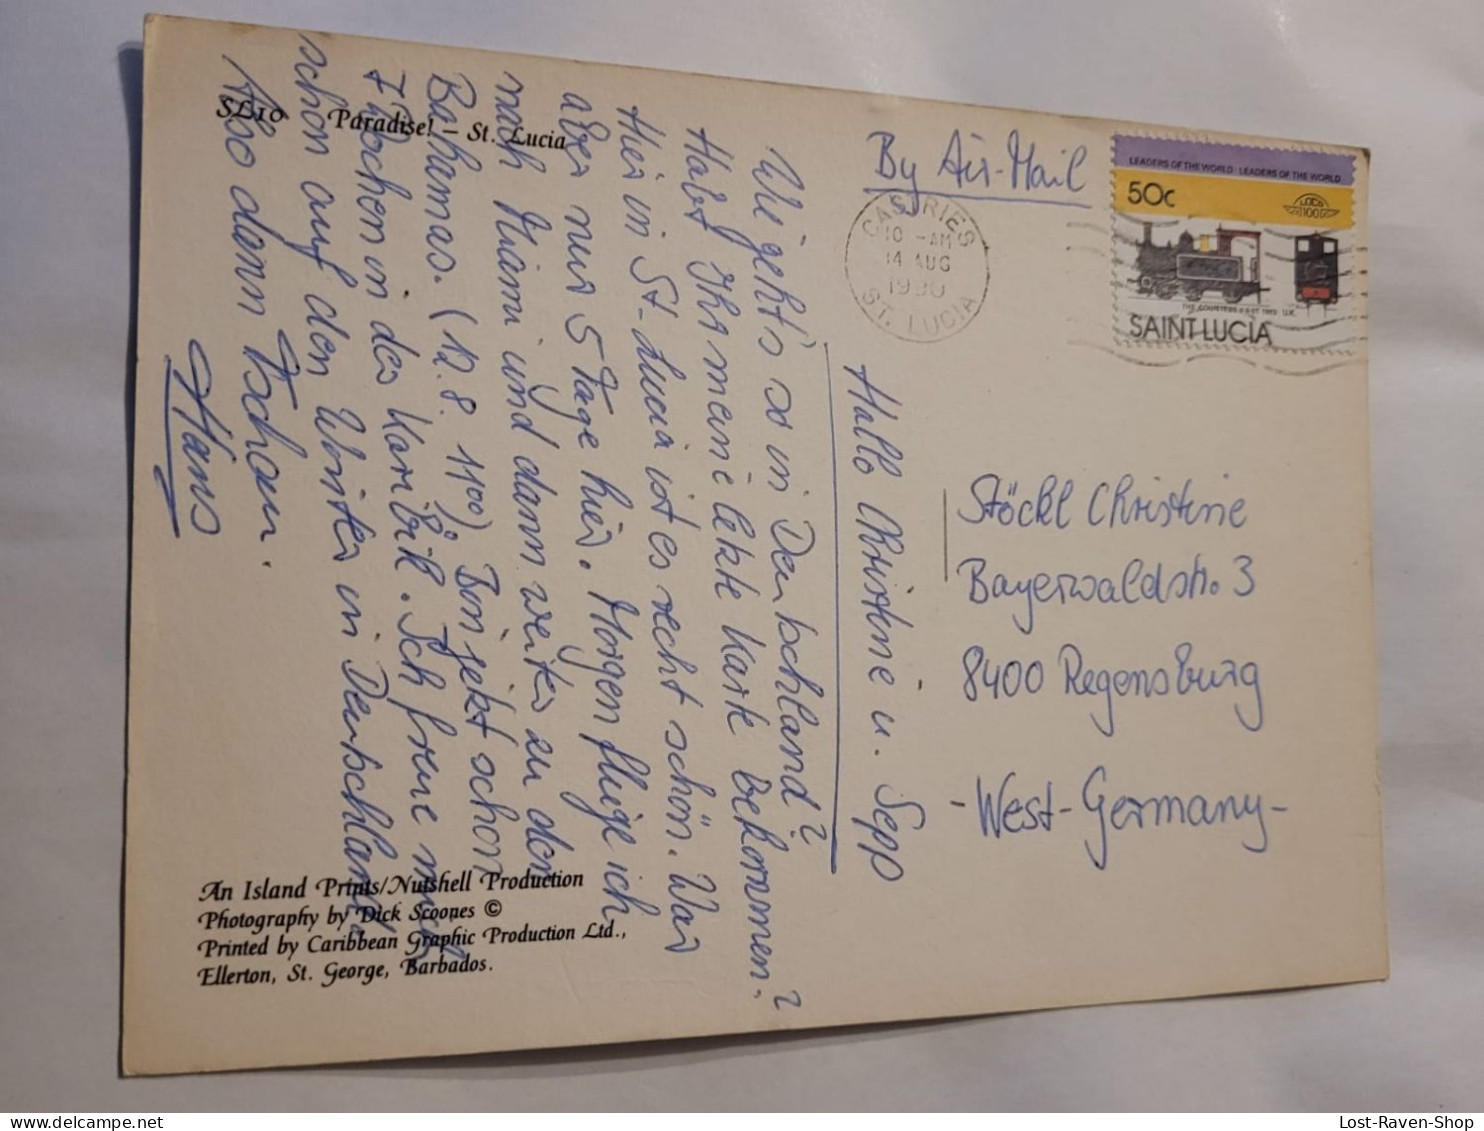 SL10 Paradise! – St. Lucia
By Air-Mail
CASTRIES
10 -AM
14 AUG
ST. LUCIA
LEADERS OF THE WORLD · LEADERS OF THE WORLD
50c
LOCO
100
SAINT LUCIA
Hallo Christine u. Sepp
Wie geht's so in Deutschland?
Habt Ihr meine letzte Karte bekommen?
Hier in St. Lucia ist es recht schön. War
aber nur 5 Tage hier. Morgen fliege ich
nach Miami und dann weiter zu den
Bahamas. (12.8. 1100) Bin jetzt schon
7 Wochen in der Karibik. Ich freue mich
schon auf den Winter in Deutschland.
Also dann Tschau.
Hans
Stöckl Christine
Bayerwaldstr. 3
8400 Regensburg
- West-Germany -
An Island Prints/Nutshell Production
Photography by Dick Scoones ©
Printed by Caribbean Graphic Production Ltd.,
Ellerton, St. George, Barbados.
Lost-Raven-Shop